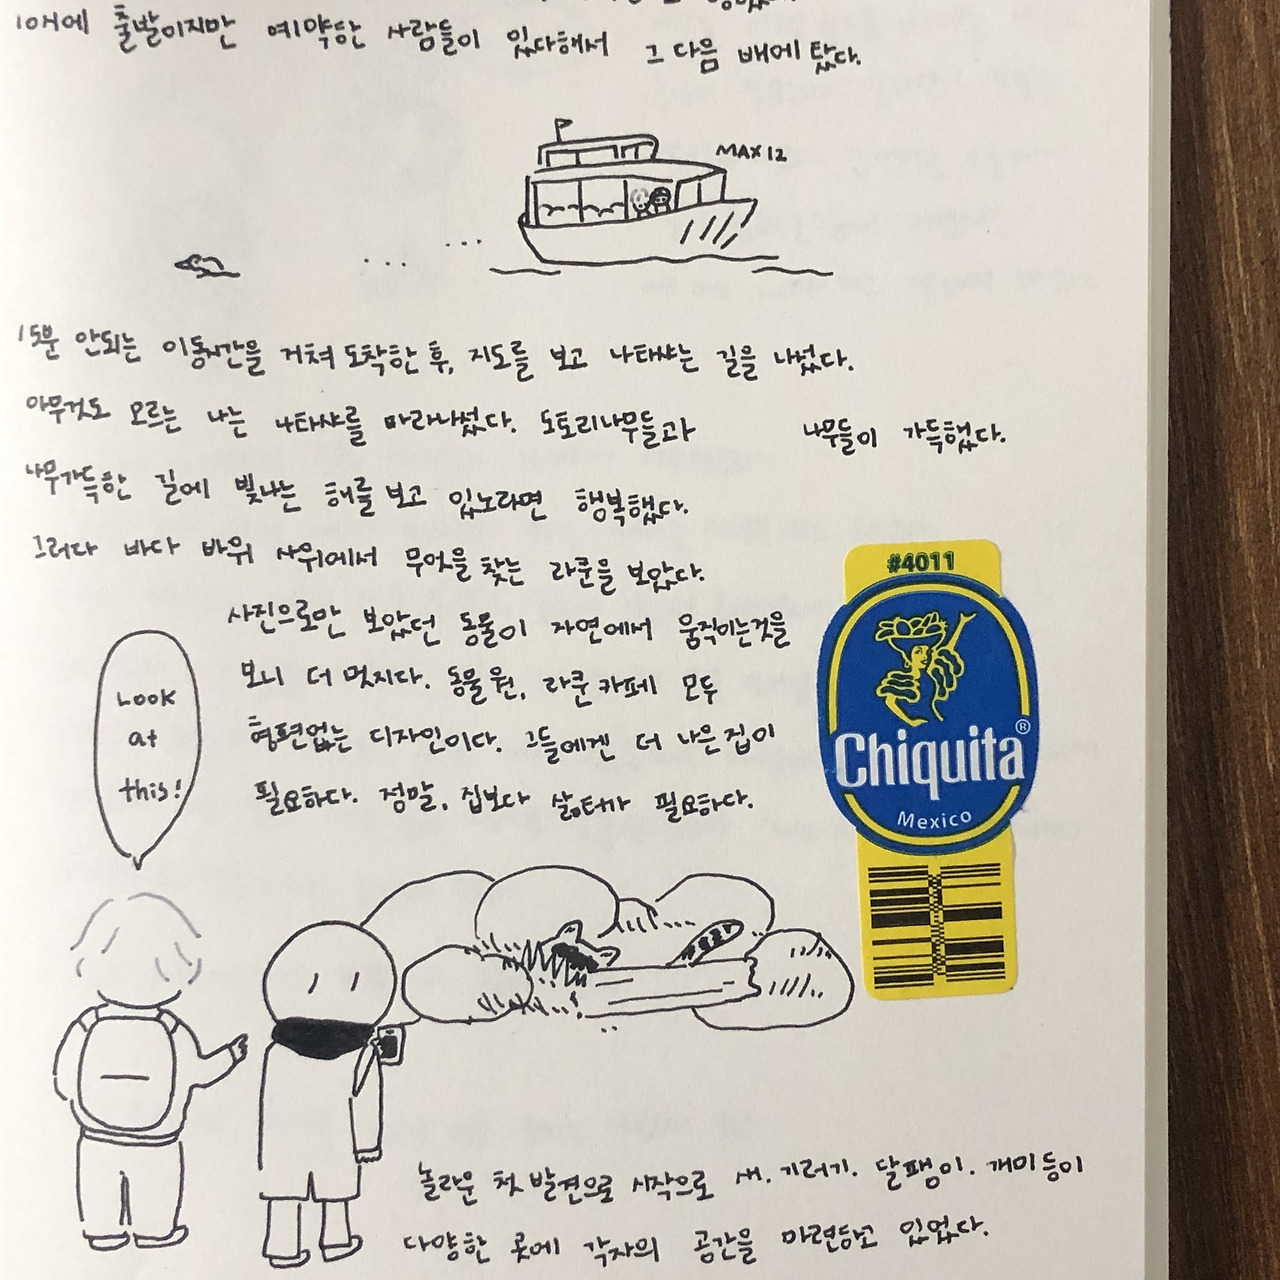 10시에 출발이지만 예약한 사람들이 있다해서 그 다음 배에 탔다.
MAX 12
15분 안되는 이동시간을 거쳐 도착한 후, 지도를 보고 나타샤는 길을 나섰다.
아무것도 모르는 나는 나타샤를 따라나섰다. 도토리나무들과 나무들이 가득했다.
나무가득한 길에 빛나는 해를 보고 있노라면 행복했다.
그러다 바다 바위 사위에서 무엇을 찾는 라쿤을 보았다.
사진으로만 보았던 동물이 자연에서 움직이는것을
보니 더 멋지다. 동물원, 라쿤카페 모두
형편없는 디자인이다. 그들에겐 더 나은 집이
필요하다. 정말, 집보다 삶터가 필요하다.
Look
at
this!
#4011
Chiquita®
Mexico
놀라운 첫 발견으로 시작으로 새. 기러기. 달팽이. 개미등이
다양한 곳에 각자의 공간을 마련하고 있었다.